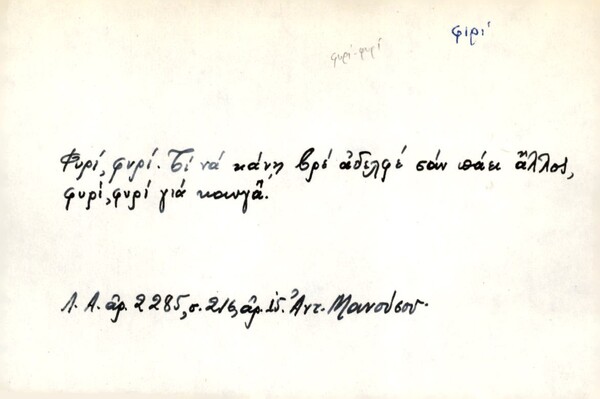 φιρί
φυρί-φυρί
Φυρί, φυρί. Τί νά κάνῃ βρέ ἀδελφέ σάν πάει ἄλλος,
φυρί, φυρί γιά καυγᾶ.
Λ. Α. ἀρ. 2285, σ. 216, ἀρ. ιδ. Ἀντ. Μανούσου.